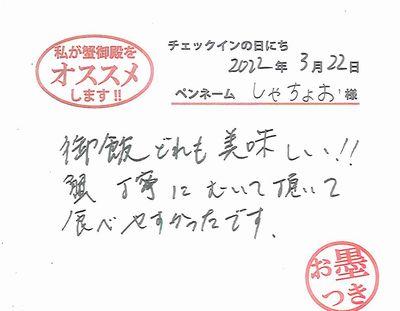 私が蟹御殿を
オススメ
します!!
チェックインの日にち
2022年 3月22日
ペンネーム しゃちょお 様
御飯どれも美味しい!!
蟹 丁寧にむいて頂いて
食べやすかったです。
お墨
つき